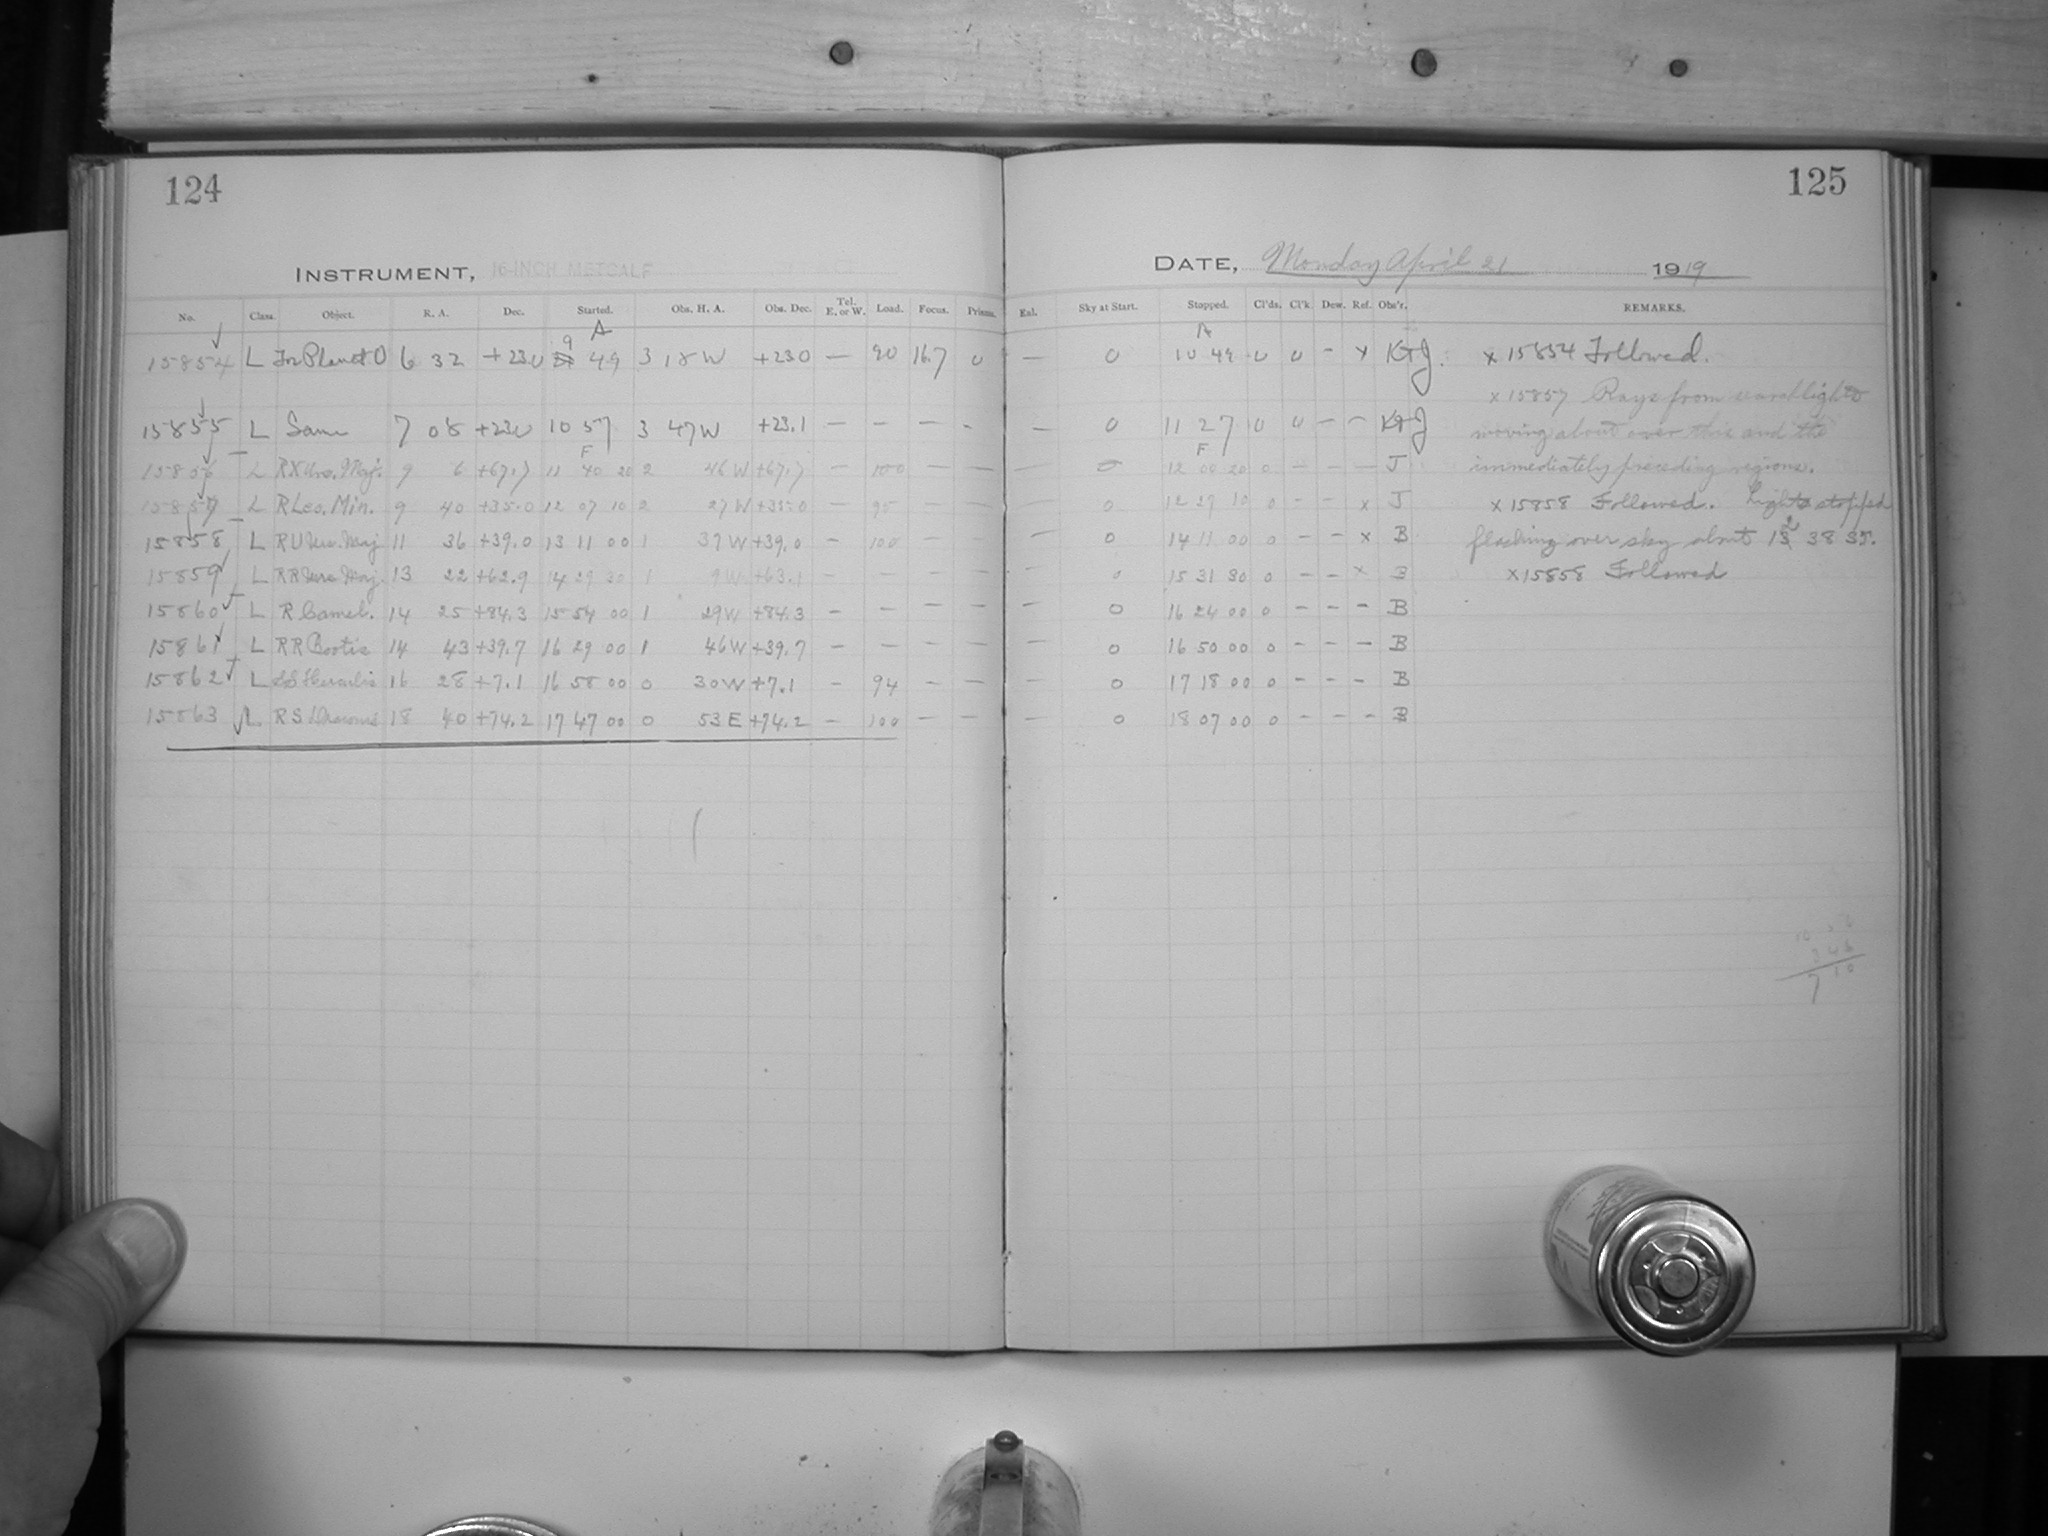 124
125
INSTRUMENT, 16-INCH METCALF
DATE, Monday April 21 1919
No. Class. Object. R. A. Dec. Started. Obs. H. A. Obs. Dec. Tel. E. or W. Load. Focus. Prisms. Eal. Sky at Start. Stopped. Cl'ds. Cl'k. Dew. Ref. Obs'r. REMARKS.
A A
15854 L For Planet O 6 32 +23.0 9 49 3 18 W +23.0 — 90 16.7 0 — 0 10 49 0 0 - x x 15854 Followed.
x 15857 Rays from searchlights
15855 L Same 7 08 +23.0 10 57 3 47 W +23.1 — — — - — 0 11 27 0 0 - - moving about over this and the
F F
15856 L RX Urs. Maj. 9 6 +67.7 11 40 20 2 46 W +67.7 — 100 — — — 0 12 00 20 0 - - — J immediately preceding regions.
15857 L R Leo. Min. 9 40 +35.0 12 07 10 2 27 W +35.0 — 95 — — — 0 12 27 10 0 - - x J x 15858 Followed. Lights stopped
15858 L RU Urs. Maj 11 36 +39.0 13 11 00 1 37 W +39.0 — 100 — — — 0 14 11 00 0 - - x B flashing over sky about 12 38 35.
15859 L RR Urs. Maj. 13 22 +62.9 14 29 30 1 9 W +63.1 — — — — — 0 15 31 30 0 - - x B x 15858 Followed
15860 L R Camel. 14 25 +84.3 15 54 00 1 29 W +84.3 — — — — — 0 16 24 00 0 - - - B
15861 L RR Bootis 14 43 +39.7 16 29 00 1 46 W +39.7 — — — — — 0 16 50 00 0 - - - B
15862 L SS Herculis 16 28 +7.1 16 58 00 0 30 W +7.1 — 94 — — — 0 17 18 00 0 - - - B
15863 L. RS Draconis 18 40 +74.2 17 47 00 0 53 E +74.2 — 100 — — — 0 18 07 00 0 - - - B
7 10